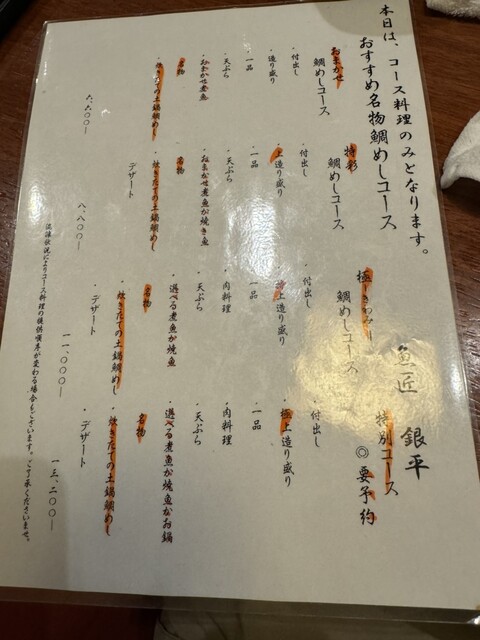 本日は、コース料理のみとなります。
おすすめ名物鯛めしコース
魚匠 銀平
おまかせ
鯛めしコース
・付出し
・造り盛り
・一品
・天ぷら
・おまかせ煮魚
名物
・炊きたての土鍋鯛めし
六、六〇〇ー
特彩
鯛めしコース
・付出し
・上造り盛り
・一品
・天ぷら
・おまかせ煮魚か焼き魚
名物
・炊きたての土鍋鯛めし
デザート
八、八〇〇ー
極ーきわみー
鯛めしコース
・付出し
・特上造り盛り
・一品
・肉料理
・天ぷら
・選べる煮魚か焼魚
名物
・炊きたての土鍋鯛めし
・デザート
一一、〇〇〇ー
特別コース
◎要予約
・付出し
・極上造り盛り
・一品
・肉料理
・天ぷら
・選べる煮魚か焼魚かお鍋
名物
・炊きたての土鍋鯛めし
・デザート
一三、二〇〇ー
混雑状況によりコース料理の提供順序が変わる場合もございます。ご了承くださいませ。